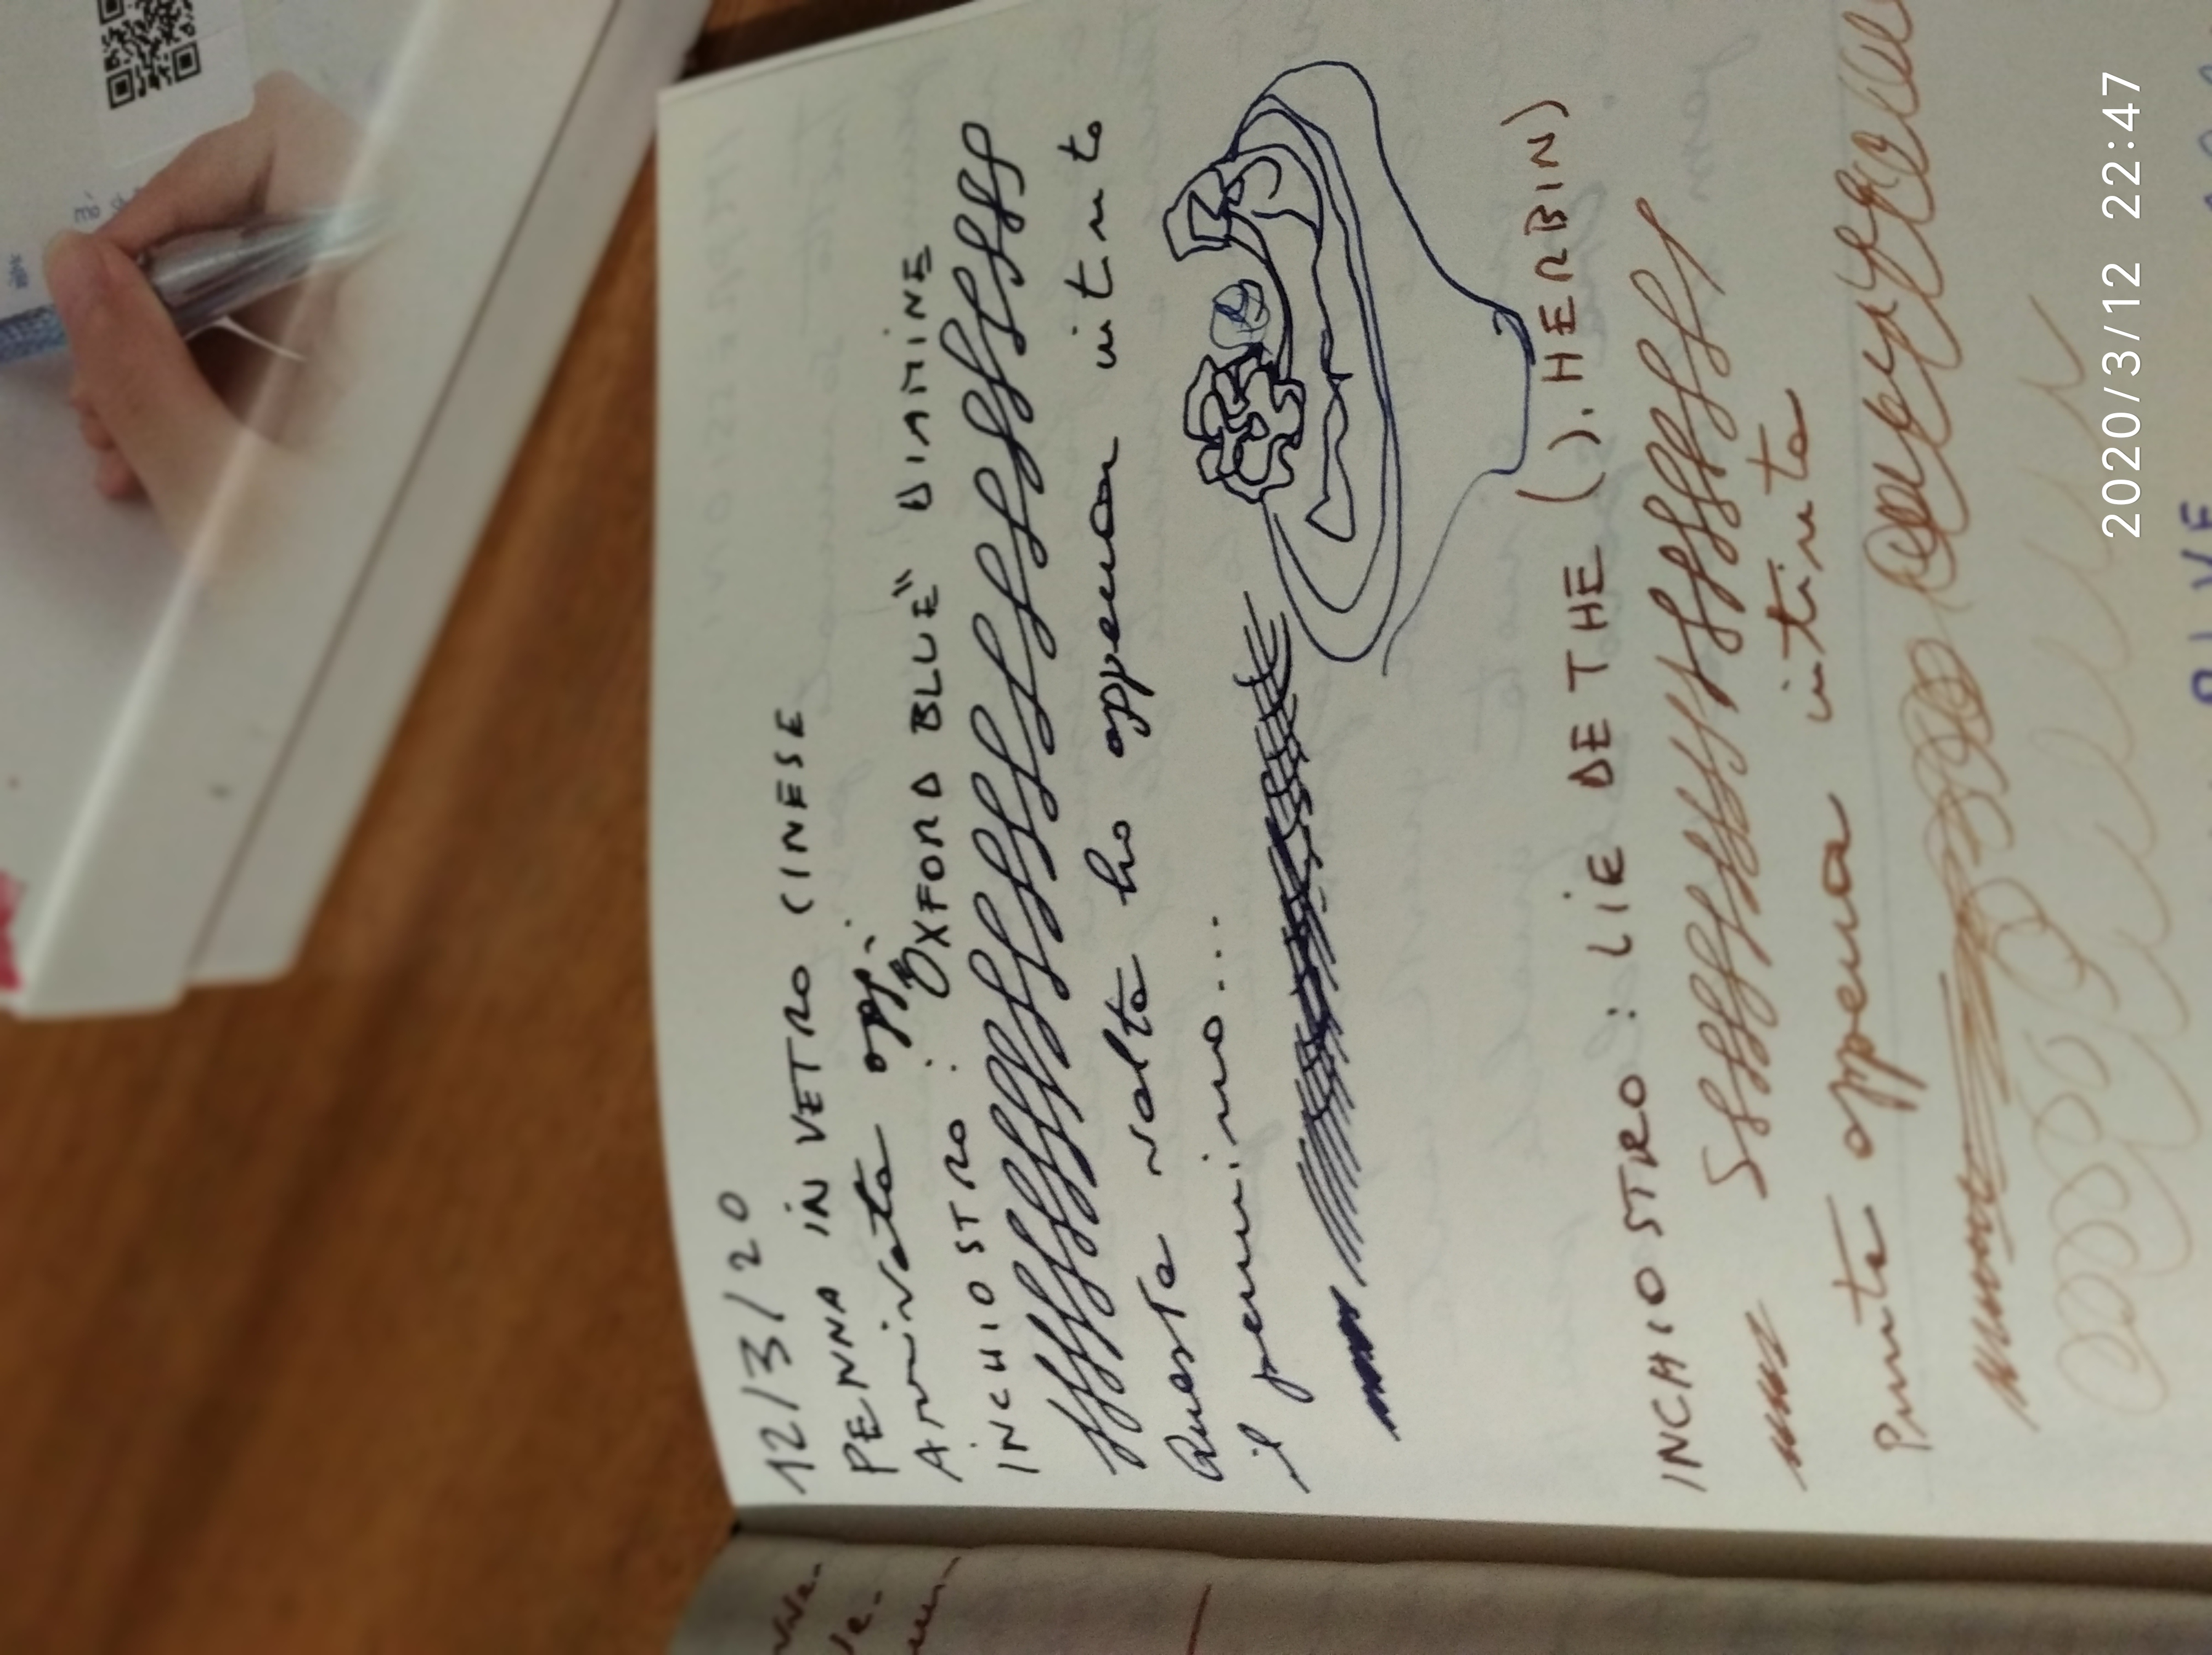 12/3/20
PENNA IN VETRO CINESE
Arrivata oggi.
INCHIOSTRO: OXFORD BLUE" DIAMINE
Questa volta ho appena intinto
il pennino...
INCHIOSTRO: LIE DE THE (J. HERBIN)
Punta appena intinta
2020/3/12 22:47